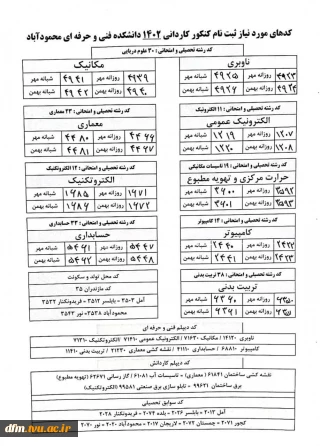 کدهای مورد نیاز ثبت نام کنکور کاردانی ۱۴۰۲ دانشکده فنی و حرفه ای محمودآباد
کد رشته تحصیلی و امتحانی: ۳۰ علوم دریایی
ناوبری
مکانیک
۴۹۲۳ روزانه مهر ۴۹۲۵ شبانه مهر
۴۹۲۴ روزانه بهمن ۴۹۲۶ شبانه بهمن
۴۹۳۹ روزانه مهر ۴۹۴۱ شبانه مهر
۴۹۴۰ روزانه بهمن ۴۹۴۲ شبانه بهمن
کد رشته تحصیلی و امتحانی: ۱۱ الکترونیک
الکترونیک عمومی
۱۲۰۷ روزانه مهر ۱۲۱۹ شبانه مهر
۱۲۰۸ روزانه بهمن ۱۲۲۰ شبانه بهمن
کد رشته تحصیلی و امتحانی: ۴۳ معماری
معماری
۴۴۶۶ روزانه مهر ۴۴۸۰ شبانه مهر
۴۴۶۷ روزانه بهمن ۴۴۸۱ شبانه بهمن
کد رشته تحصیلی و امتحانی: ۱۹ تاسیسات مکانیکی
حرارت مرکزی و تهویه مطبوع
۳۵۹۲ روزانه مهر ۳۶۰۰ شبانه مهر
۳۵۹۳ روزانه بهمن ۳۶۰۱ شبانه بهمن
کد رشته تحصیلی و امتحانی: ۱۲ الکتروتکنیک
الکتروتکنیک
۱۹۷۱ روزانه مهر ۱۹۸۵ شبانه مهر
۱۹۷۲ روزانه بهمن ۱۹۸۶ شبانه بهمن
کد رشته تحصیلی و امتحانی: ۱۴ کامپیوتر
کامپیوتر
۲۴۲۲ روزانه مهر ۲۴۴۰ شبانه مهر
۲۴۲۳ روزانه بهمن ۲۴۴۱ شبانه بهمن
کد رشته تحصیلی و امتحانی: ۳۳ حسابداری
حسابداری
۵۴۴۷ روزانه مهر ۵۴۶۱ شبانه مهر
۵۴۴۸ روزانه بهمن ۵۴۶۲ شبانه بهمن
کد رشته تحصیلی و امتحانی: ۳۸ تربیت بدنی
تربیت بدنی
روزانه مهر ۹۳۶۰ شبانه مهر
روزانه بهمن ۹۳۶۱ شبانه بهمن
کد محل تولد و سکونت
کد مازندران ۳۵
آمل ۳۵۰۳ - بابلسر ۳۵۱۲ - فریدونکنار ۳۵۳۲
محمودآباد ۳۵۳۸ - نور ۳۵۴۳
کد دیپلم فنی و حرفه ای
ناوبری ۱۴۱۲۰ / مکانیک ۷۱۶۳۰ / الکترونیک عمومی ۷۱۴۱۰ / الکتروتکنیک ۷۱۳۱۰
کامپیوتر ۶۸۸۱۰ / حسابداری ۴۱۱۱۰ / نقشه کشی معماری ۲۱۲۳۰ / تربیت بدنی ۱۱۴۱۰
کد دیپلم کاردانش
نقشه کشی ساختمان (معماری) ۶۱۸۴۱ - تاسیسات آب ۶۱۰۸۱ / گاز رسانی ۶۲۶۷۱ (تهویه مطبوع)
برق ساختمان ۹۹۶۲۱ - تابلو سازی برق صنعتی ۹۹۵۸۱ (الکتروتکنیک)
کد سوابق تحصیلی
آمل ۲۰۱۲ - بابلسر ۲۰۲۶ - بلده ۲۰۷۴ - فریدونکنار ۲۰۲۸
کجور ۲۰۷۱ - چمستان ۲۰۷۲ - لاریجان ۲۰۱۷ - محمودآباد ۲۰۲۰ - نور ۲۰۷۰
dim.tvu.ac.ir